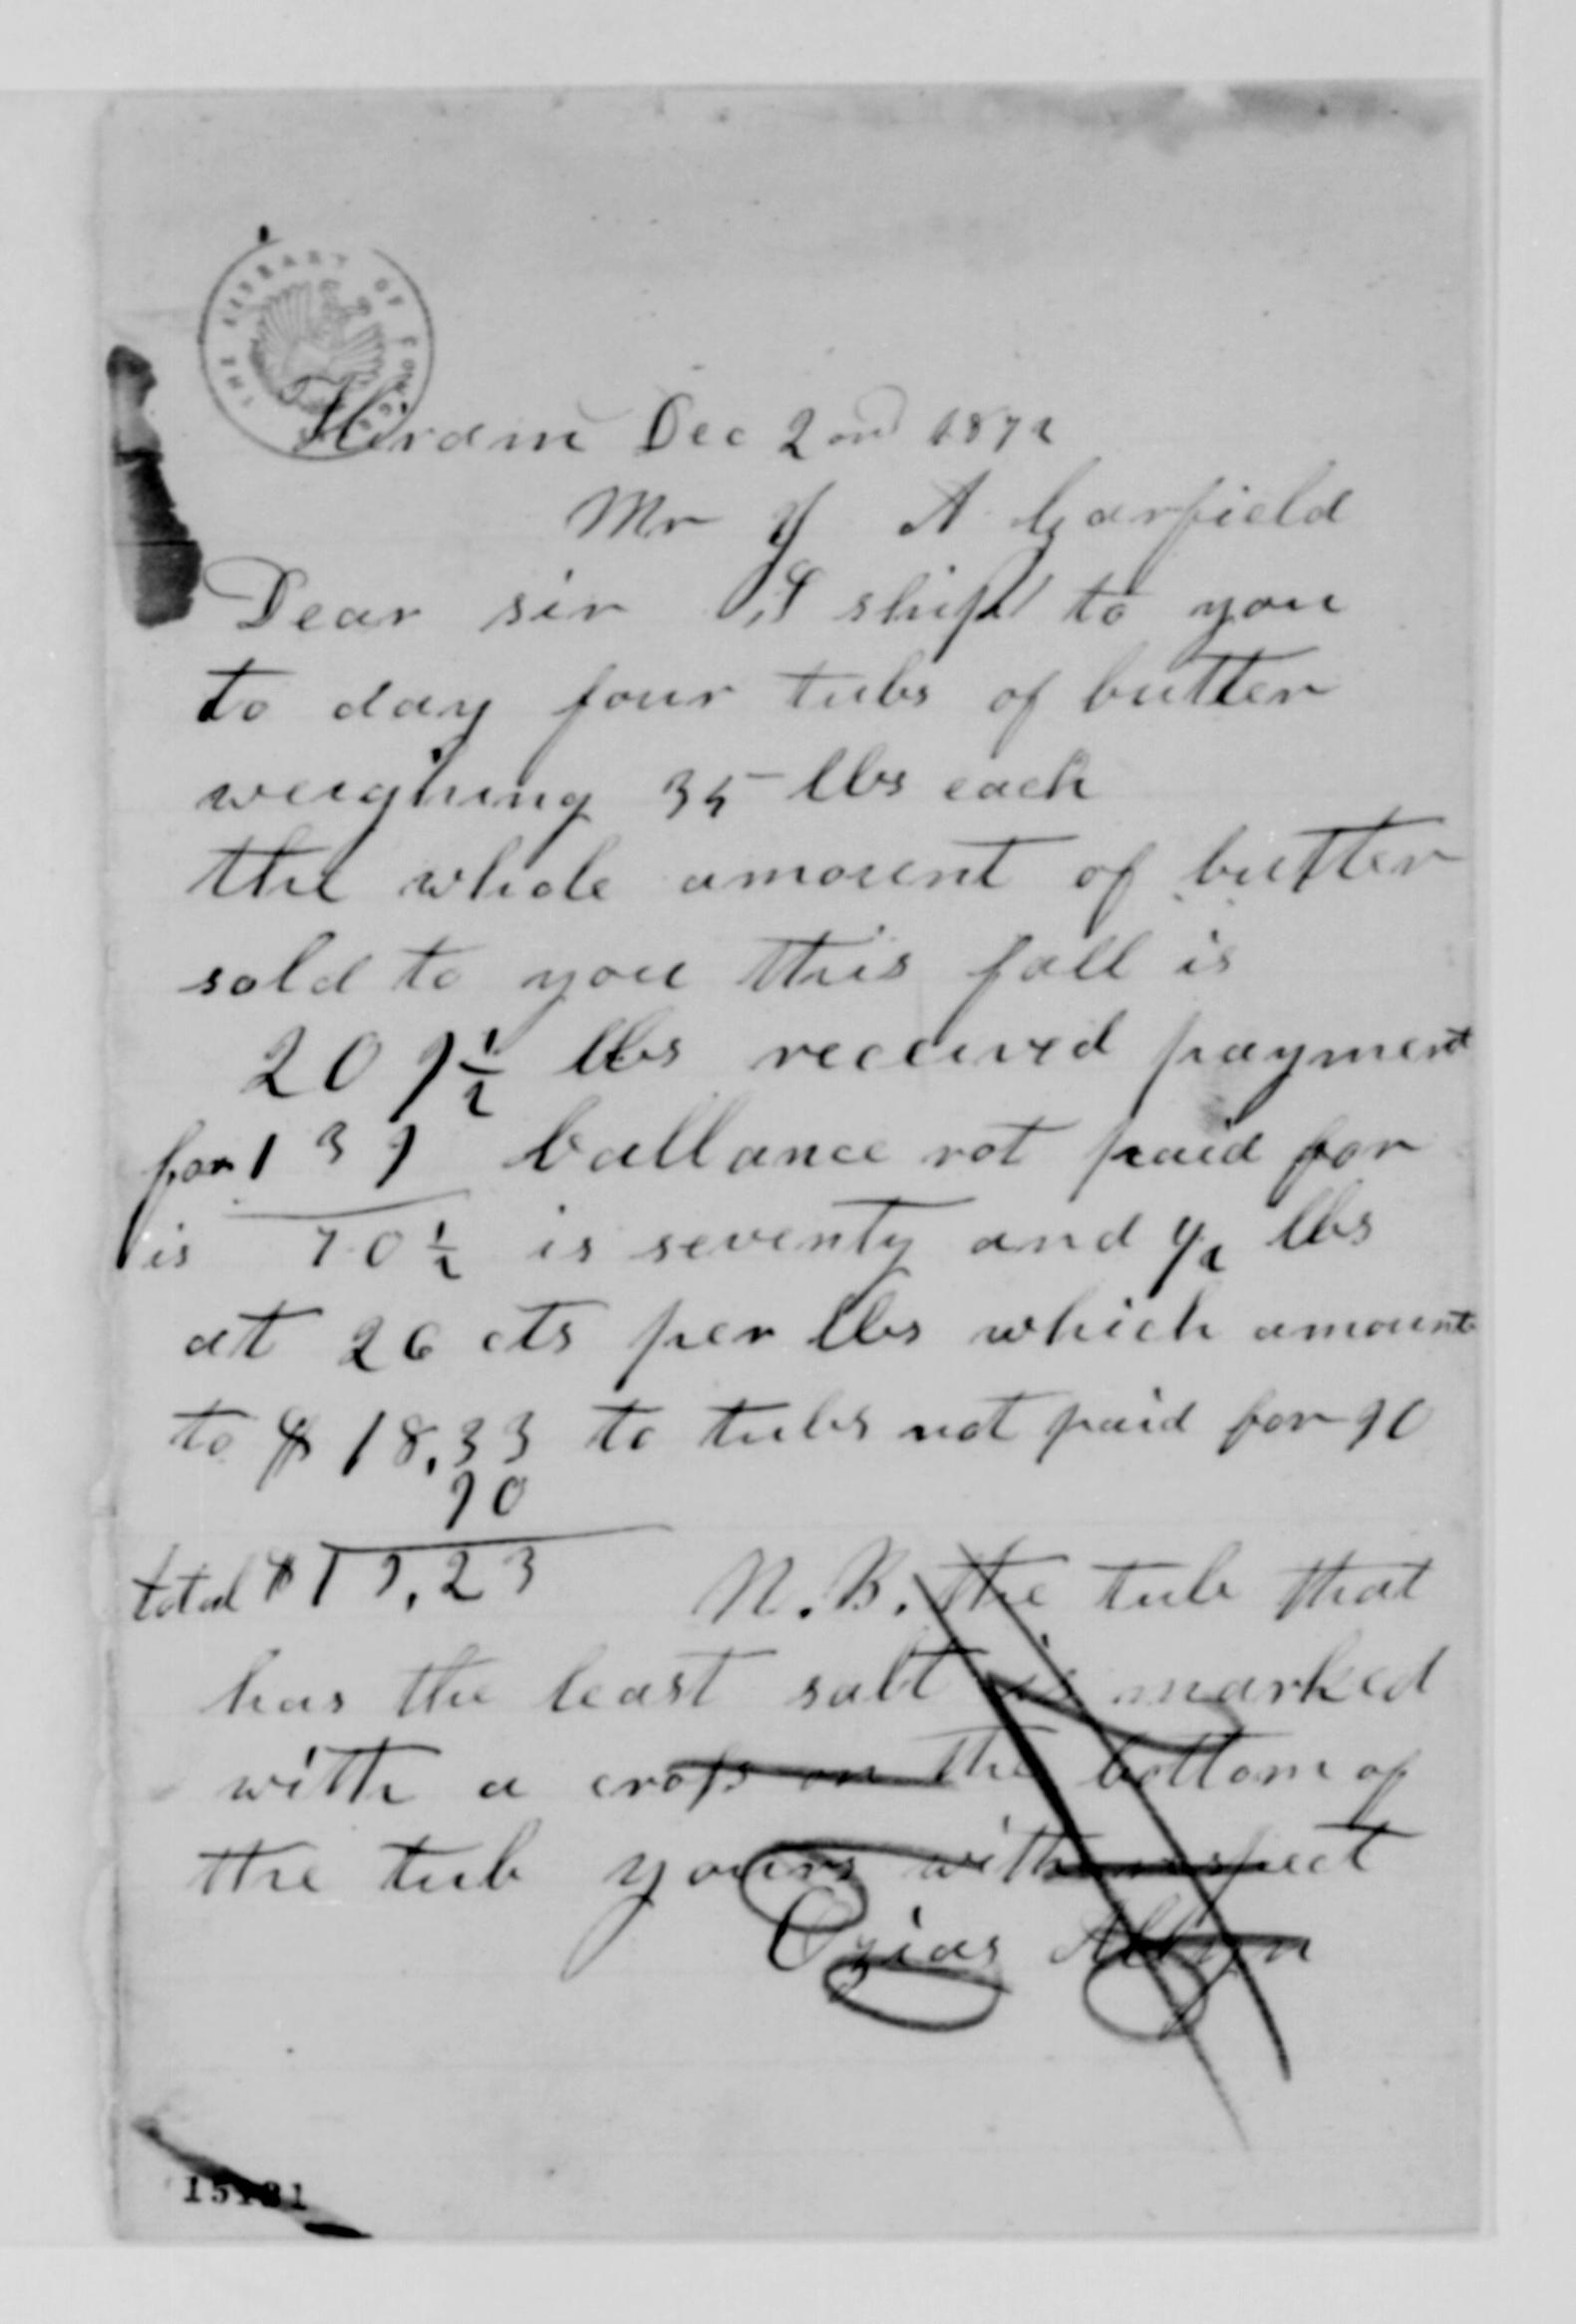 THE LIBRARY OF CONGRESS
Hiram Dec 2ond 1872
Mr J A Garfield
Dear sir I ship to you
to day four tubs of butter
weighing 35 lbs each
the whole amount of butter
sold to you this fall is
209½ lbs received payment
for 139 ballance not paid for
is 70½ is seventy and ½ lbs
at 26 cts per lbs which amounts
to $ 18.33 to tubs not paid for 90
90
total $19.23 N.B. the tub that
has the least salt is marked
with a cross on the bottom of
the tub yours with respect
Ozias Allyn